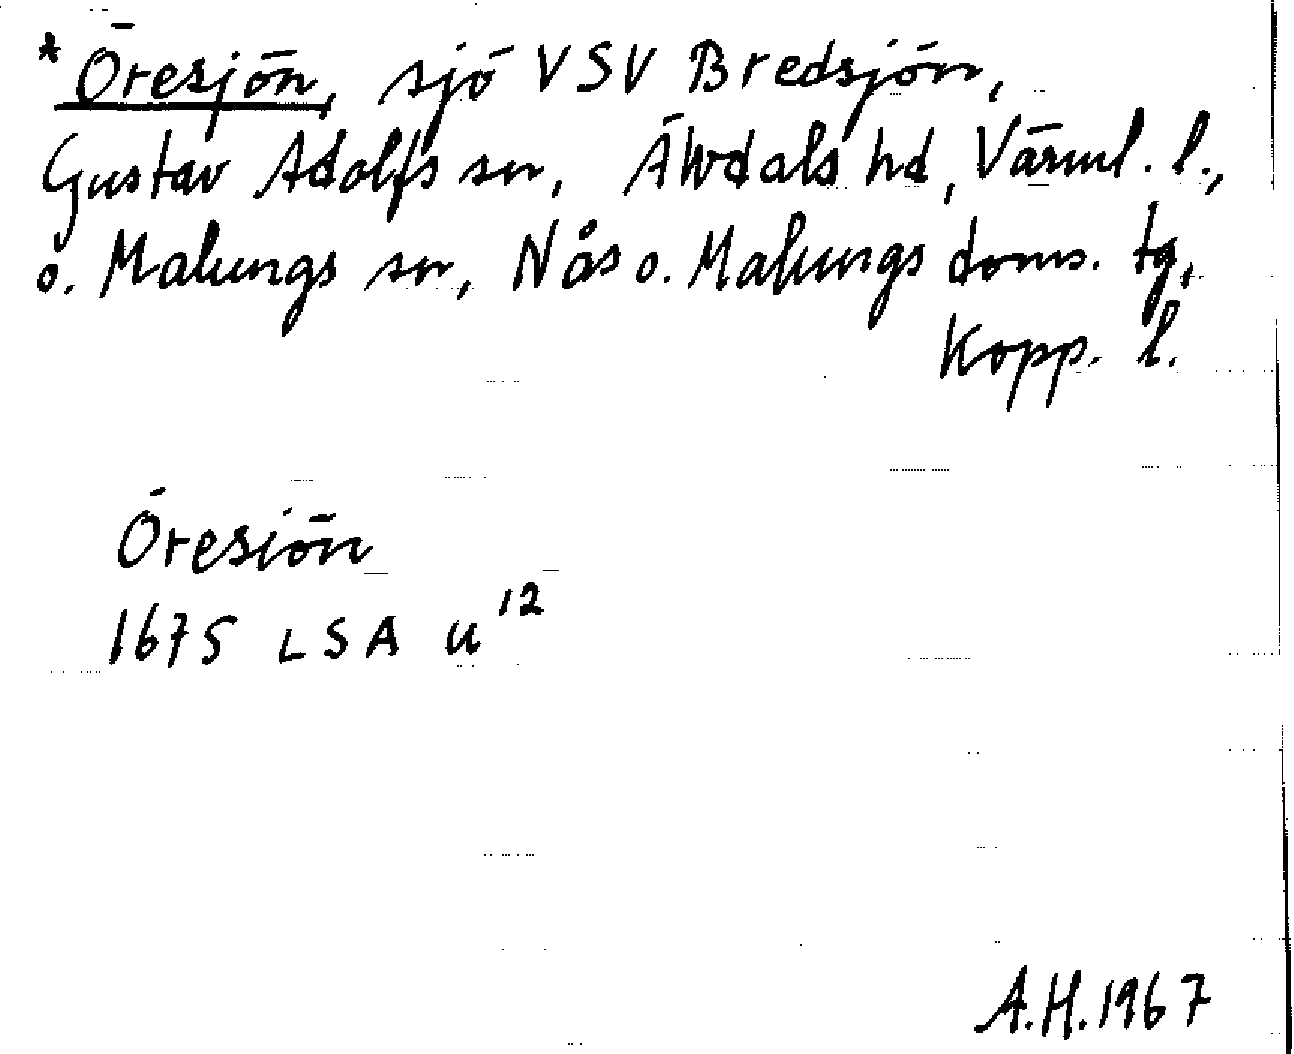 * Öresjön, sjö VSV Bredsjön,
Gustav Adolfs sn, Älvdals hd, Värml. l.,
o. Malungs sn, Nås o. Malungs doms. tg,
Kopp. l.
Öresiön
1675 LSA U 12
A.H. 1967